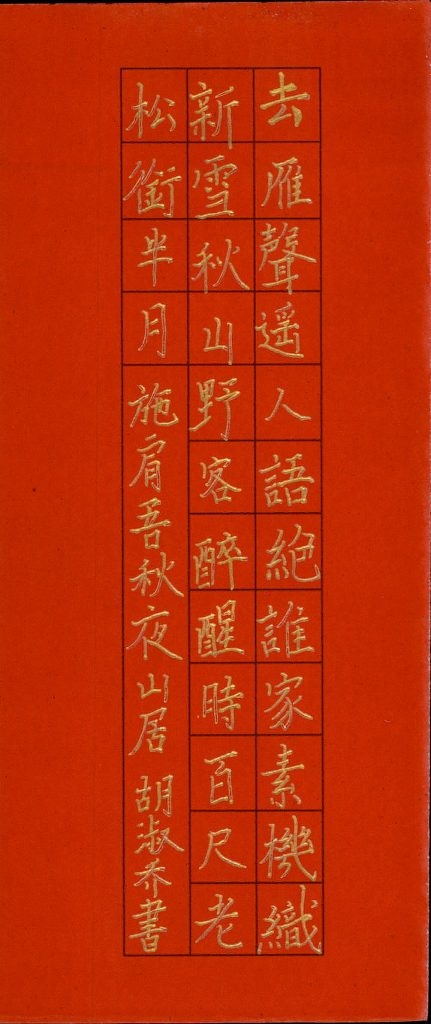 去雁聲遥人語絶誰家素機織
新雪秋山野客醉醒時百尺老
松銜半月施肩吾秋夜山居胡淑芥書